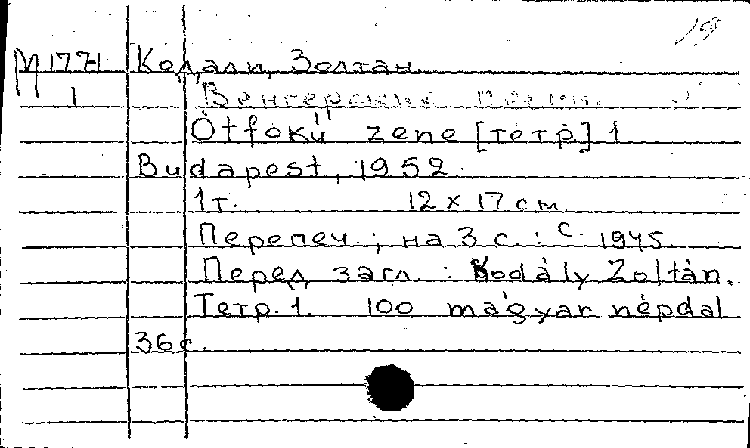 19
М 1771 Кодали, Золтан.
1 Венгерские песни.
Ötfokú zene [тетр] 1
Budapest, 1952.
1т. 12 x 17 см
Перепеч; на 3 с.: с 1945.
Перед загл.: Kodály Zoltán.
Тетр. 1. 100 magyar népdal
36с.